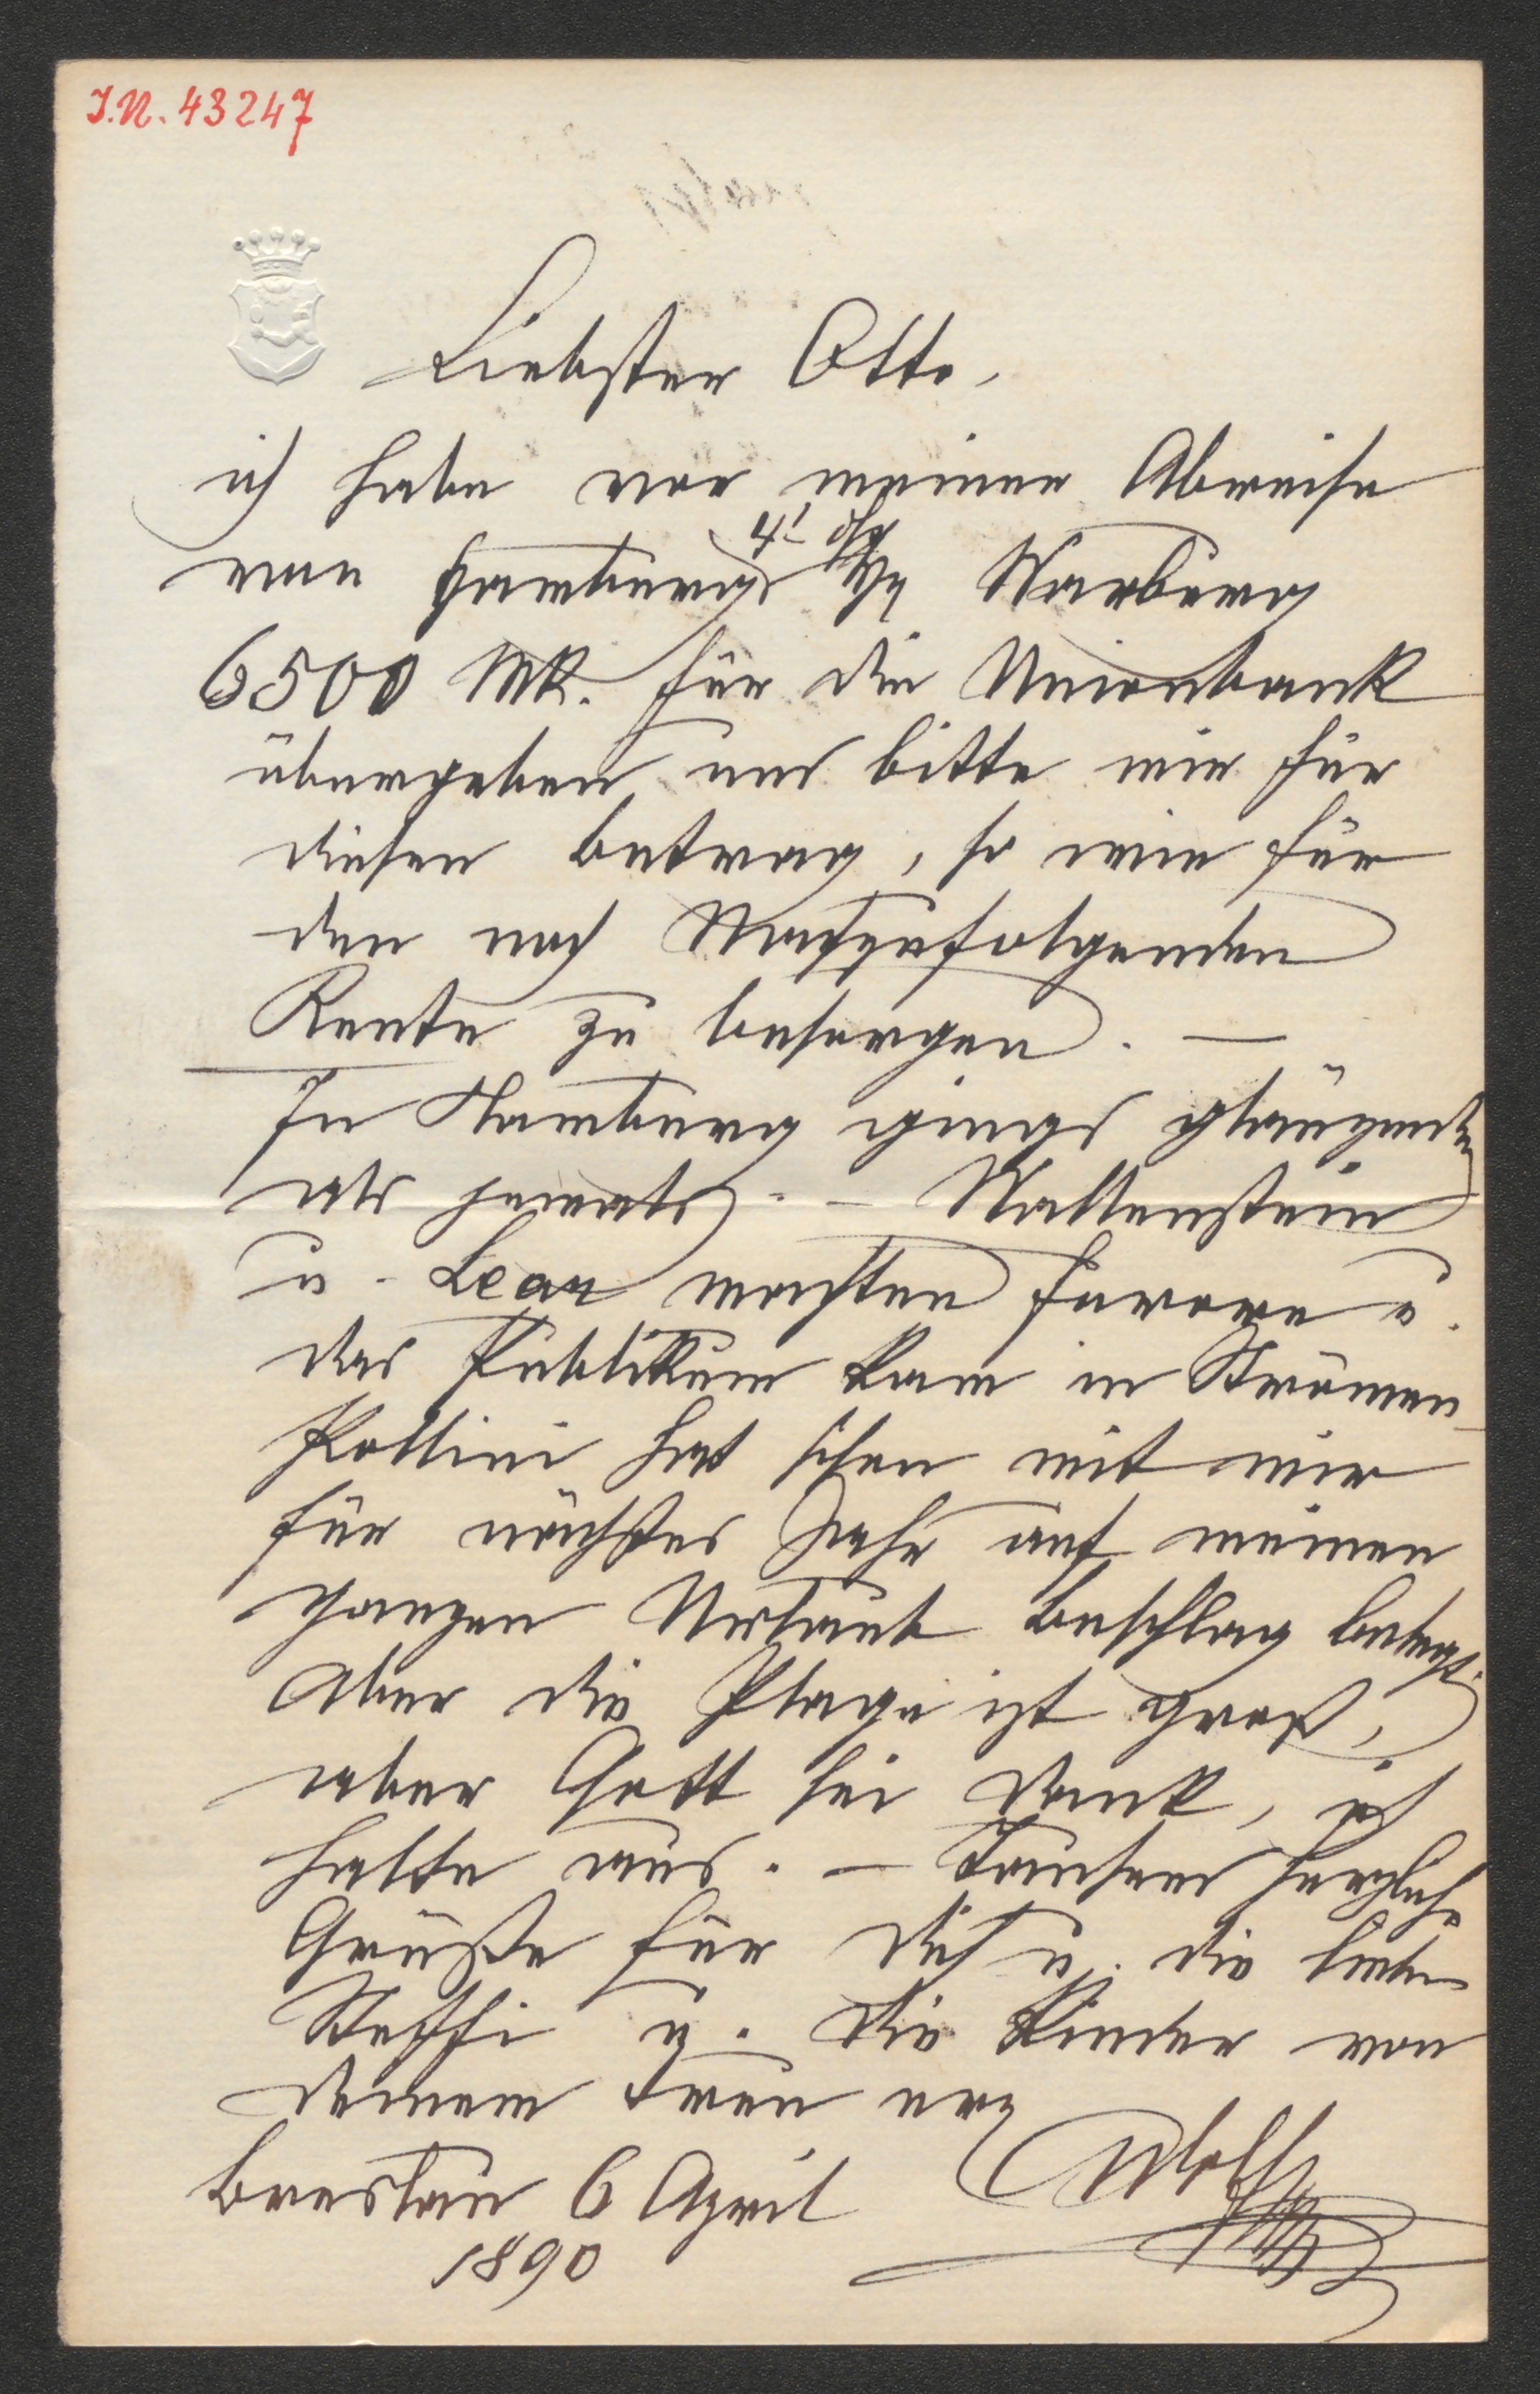 I.N. 43247
Liebster Otto,
ich habe vor meiner Abreise
von Hamburg Warburg
6500 Mk. für die Unionbank
übergeben und bitte mir für
diesen Betrag, so wie für
den noch Nachfolgenden
Rente zu besorgen. —
In Hamburg gings glänzender
als jemals. — Wallenstein
u. Lear machten Furore u.
das Publikum kam in Strömen
Pollini hat schon mit mir
für nächstes Jahr auf meinen
ganzen Urlaub Beschlag belegt.
Aber die Plage ist groß,
aber Gott sei Dank, ich
halte aus. — Tausend herzliche
Grüße für Dich u. die liebe
Steffi u. die Kinder von
Deinem treu erg
Breslau 6 April Adolf
1890